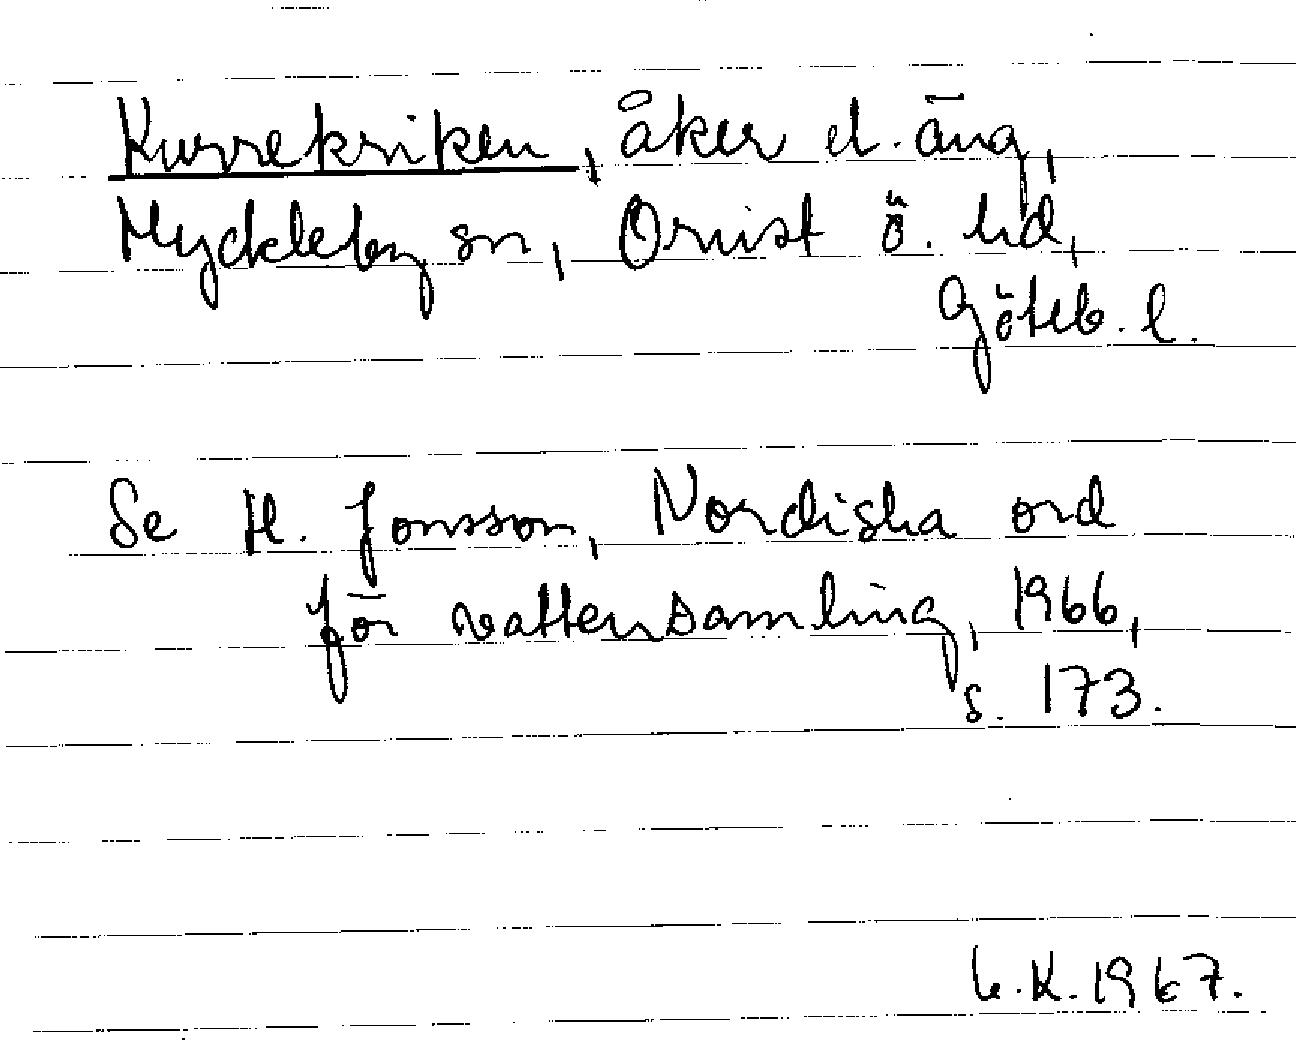 Kurrekriken, åker el. äng,
Myckleby sn, Orust ö. hd,
Göteb. l.
Se H. Jonsson, Nordiska ord
för vattensamling, 1966,
s. 173.
K. 1967.